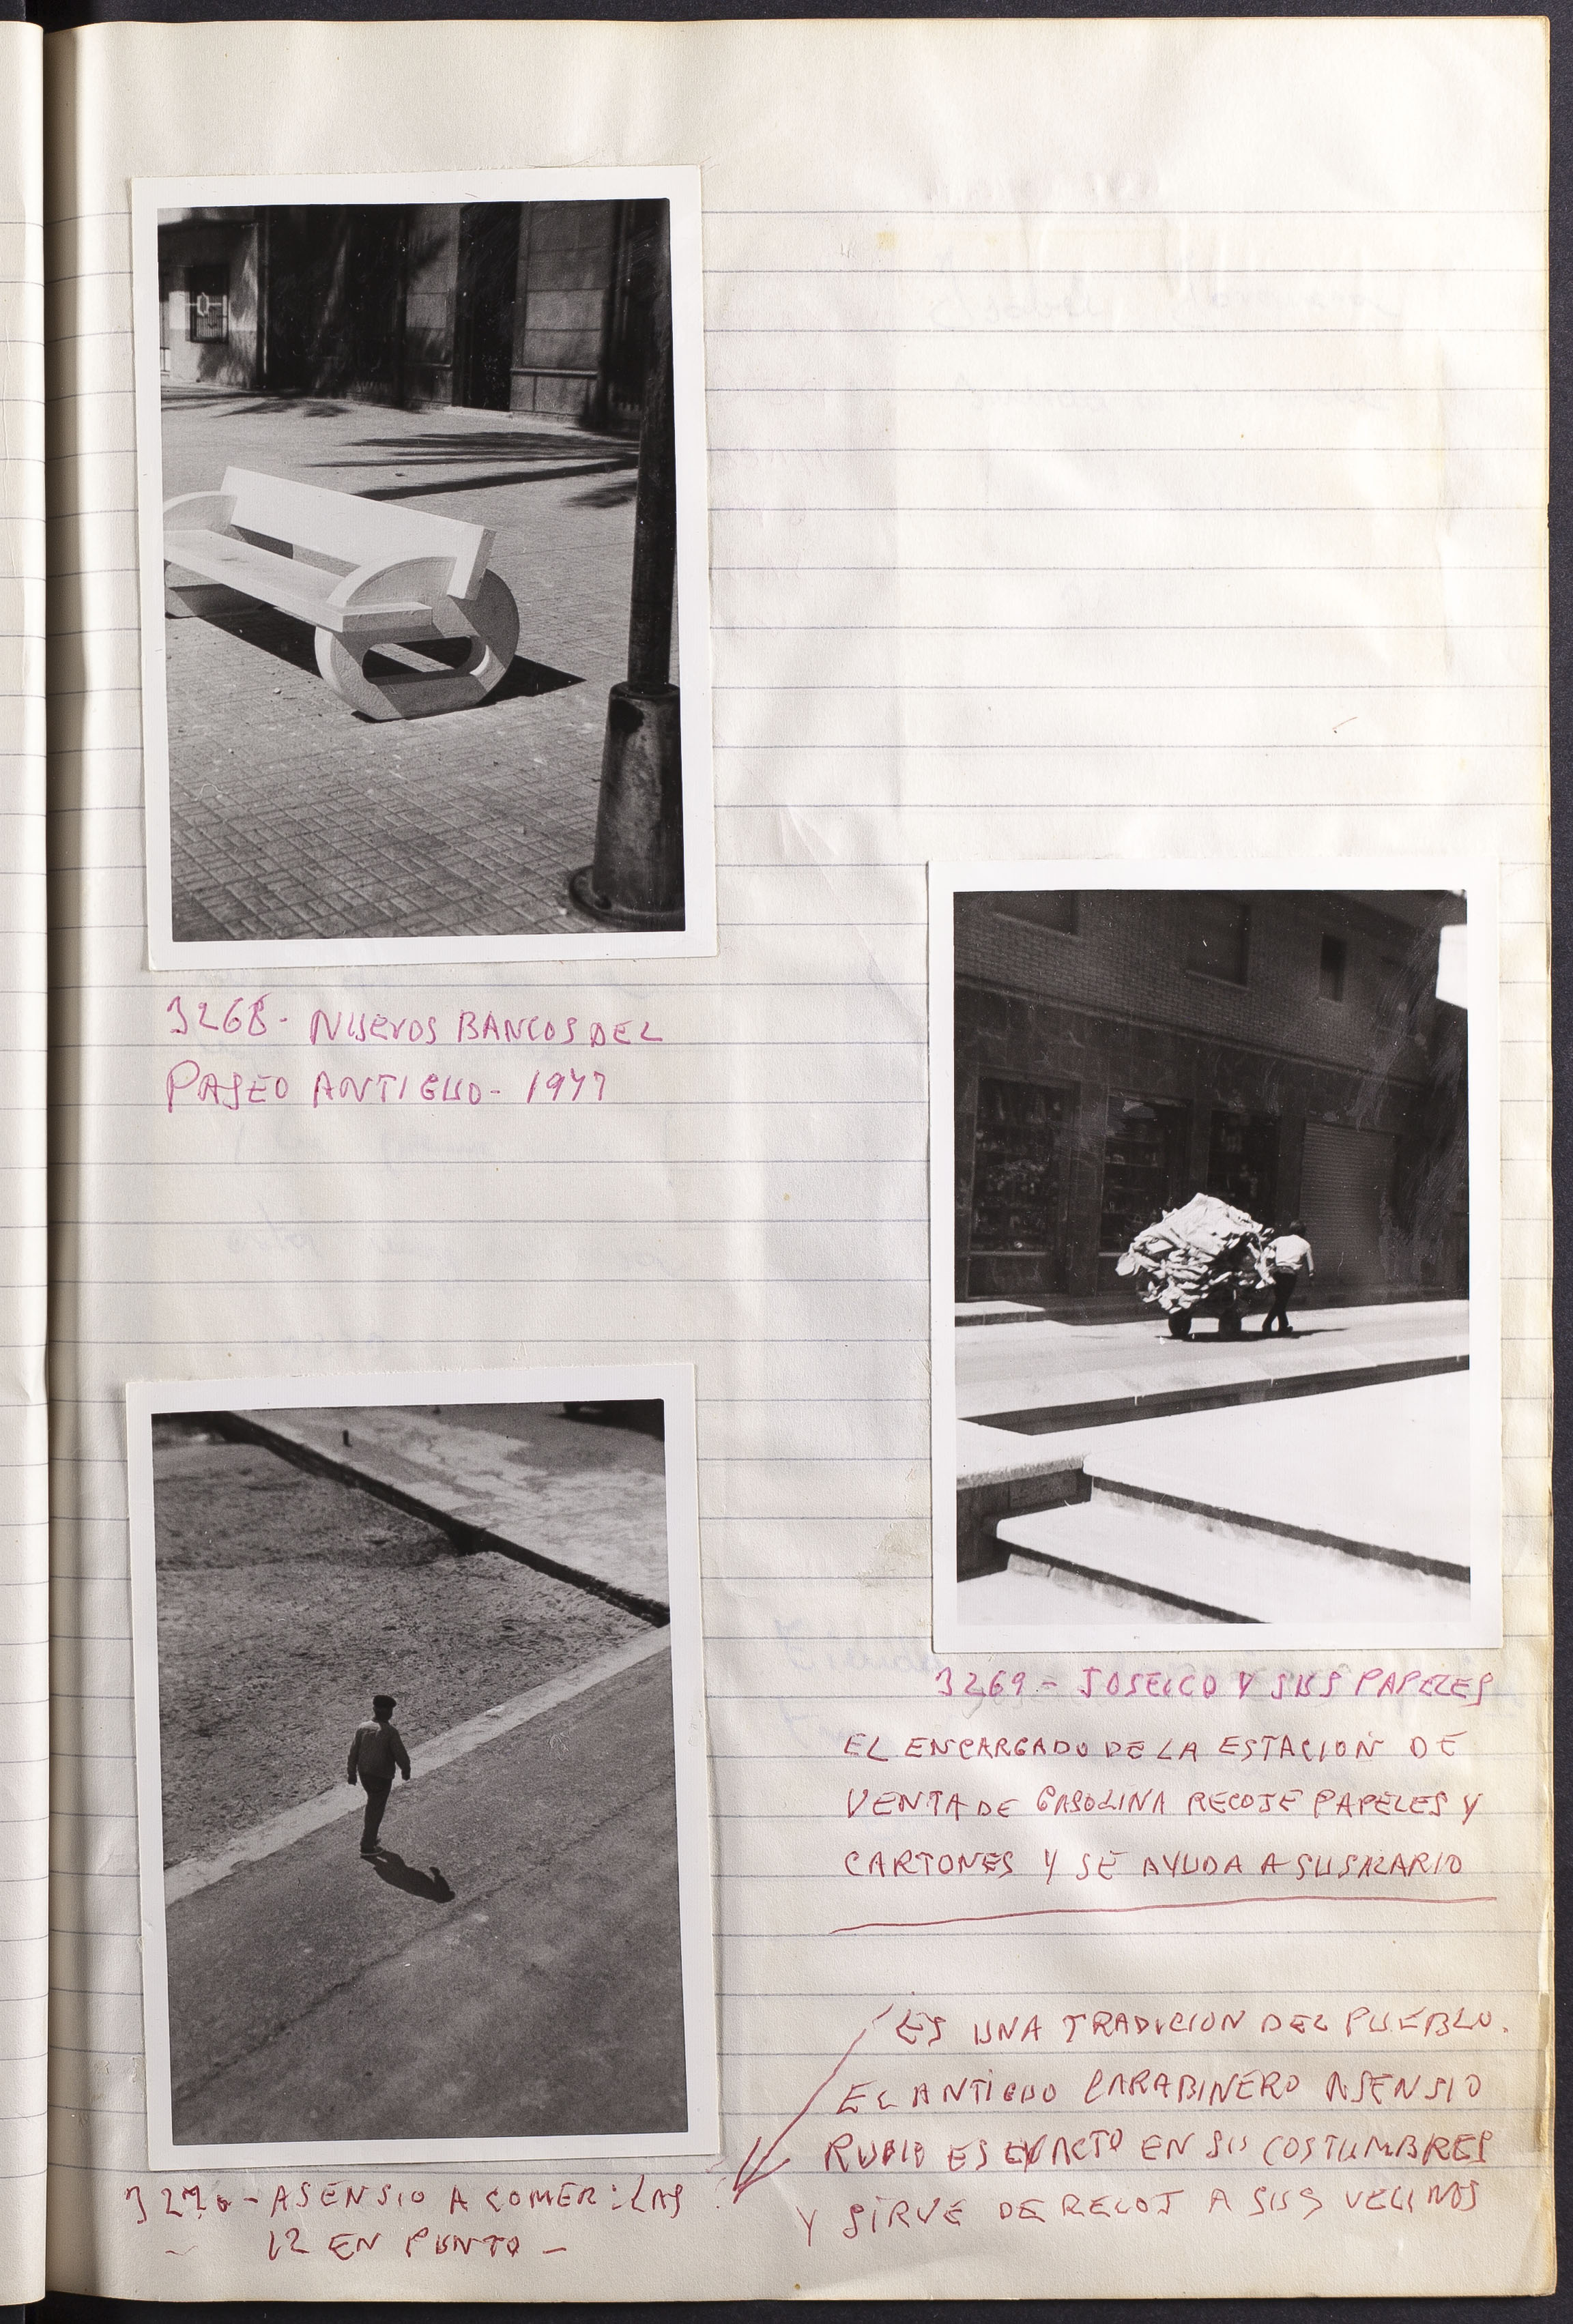 3268- NUEVOS BANCOS DEL
PASEO ANTIGUO- 1977
3269- JOSEICO Y SUS PAPELES
EL ENCARGADO DE LA ESTACION DE
VENTA DE GASOLINA RECOJE PAPELES Y
CARTONES Y SE AYUDA A SU SALARIO
ES UNA TRADICION DEL PUEBLO.
EL ANTIGUO CARABINERO ASENSIO
RUBIO ES EXACTO EN SUS COSTUMBRES
Y SIRVE DE RELOJ A SUS VECINOS
3270- ASENSIO A COMER: LAS
12 EN PUNTO -